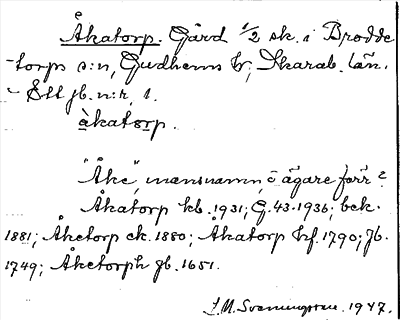 Åkatorp. Gård 1/2 sk. i Brodde
-torps s:n, Gudhems h; Skarab. län.
- Ett jb. n:r, 1.
àkatorp.
"Åke", mansnamn, ägare förr?
Åkatorp kb. 1931; G. 43. 1936; bek.
1881; Åketorp ck. 1880; Åkatorp hf. 1790; Jb.
1749; Åketorph jb. 1651.
1947.